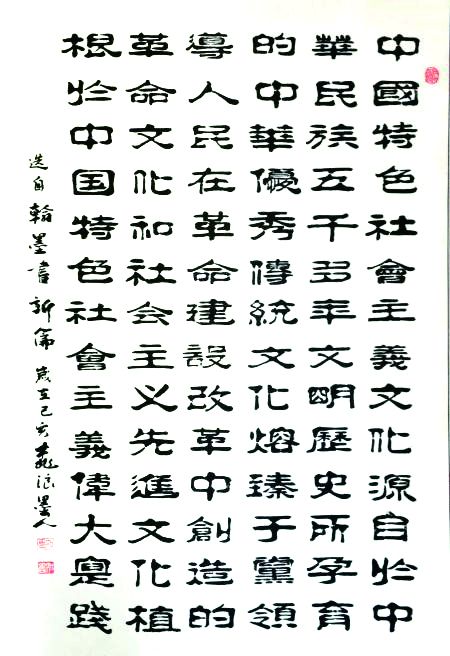 中國特色社會主義文化源自於中
華民族五千多年文明歷史所孕育
的中華優秀傳統文化熔臻于黨領
導人民在革命建設改革中創造的
革命文化和社会主义先進文化植
根於中国特色社會主義偉大實踐
选自翰墨書新篇 歲在己亥 墨人